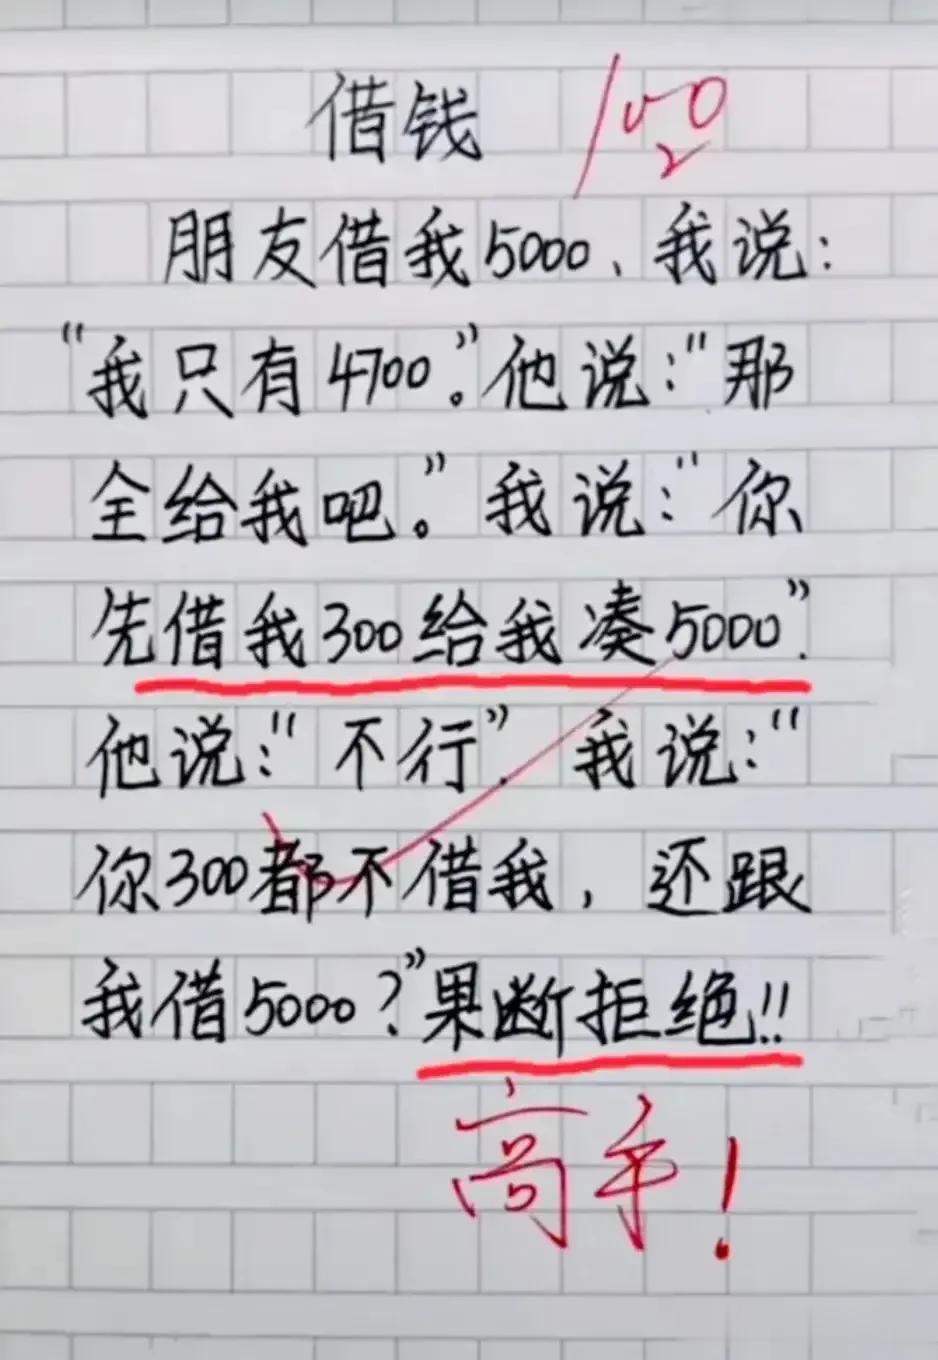 借钱 100
朋友借我5000、我说：
“我只有4700。”他说：“那
全给我吧。”我说：“你
先借我300给我凑5000”.
他说：“不行”. 我说：“
你300都不借我，还跟
我借5000？”果断拒绝!!
高手！